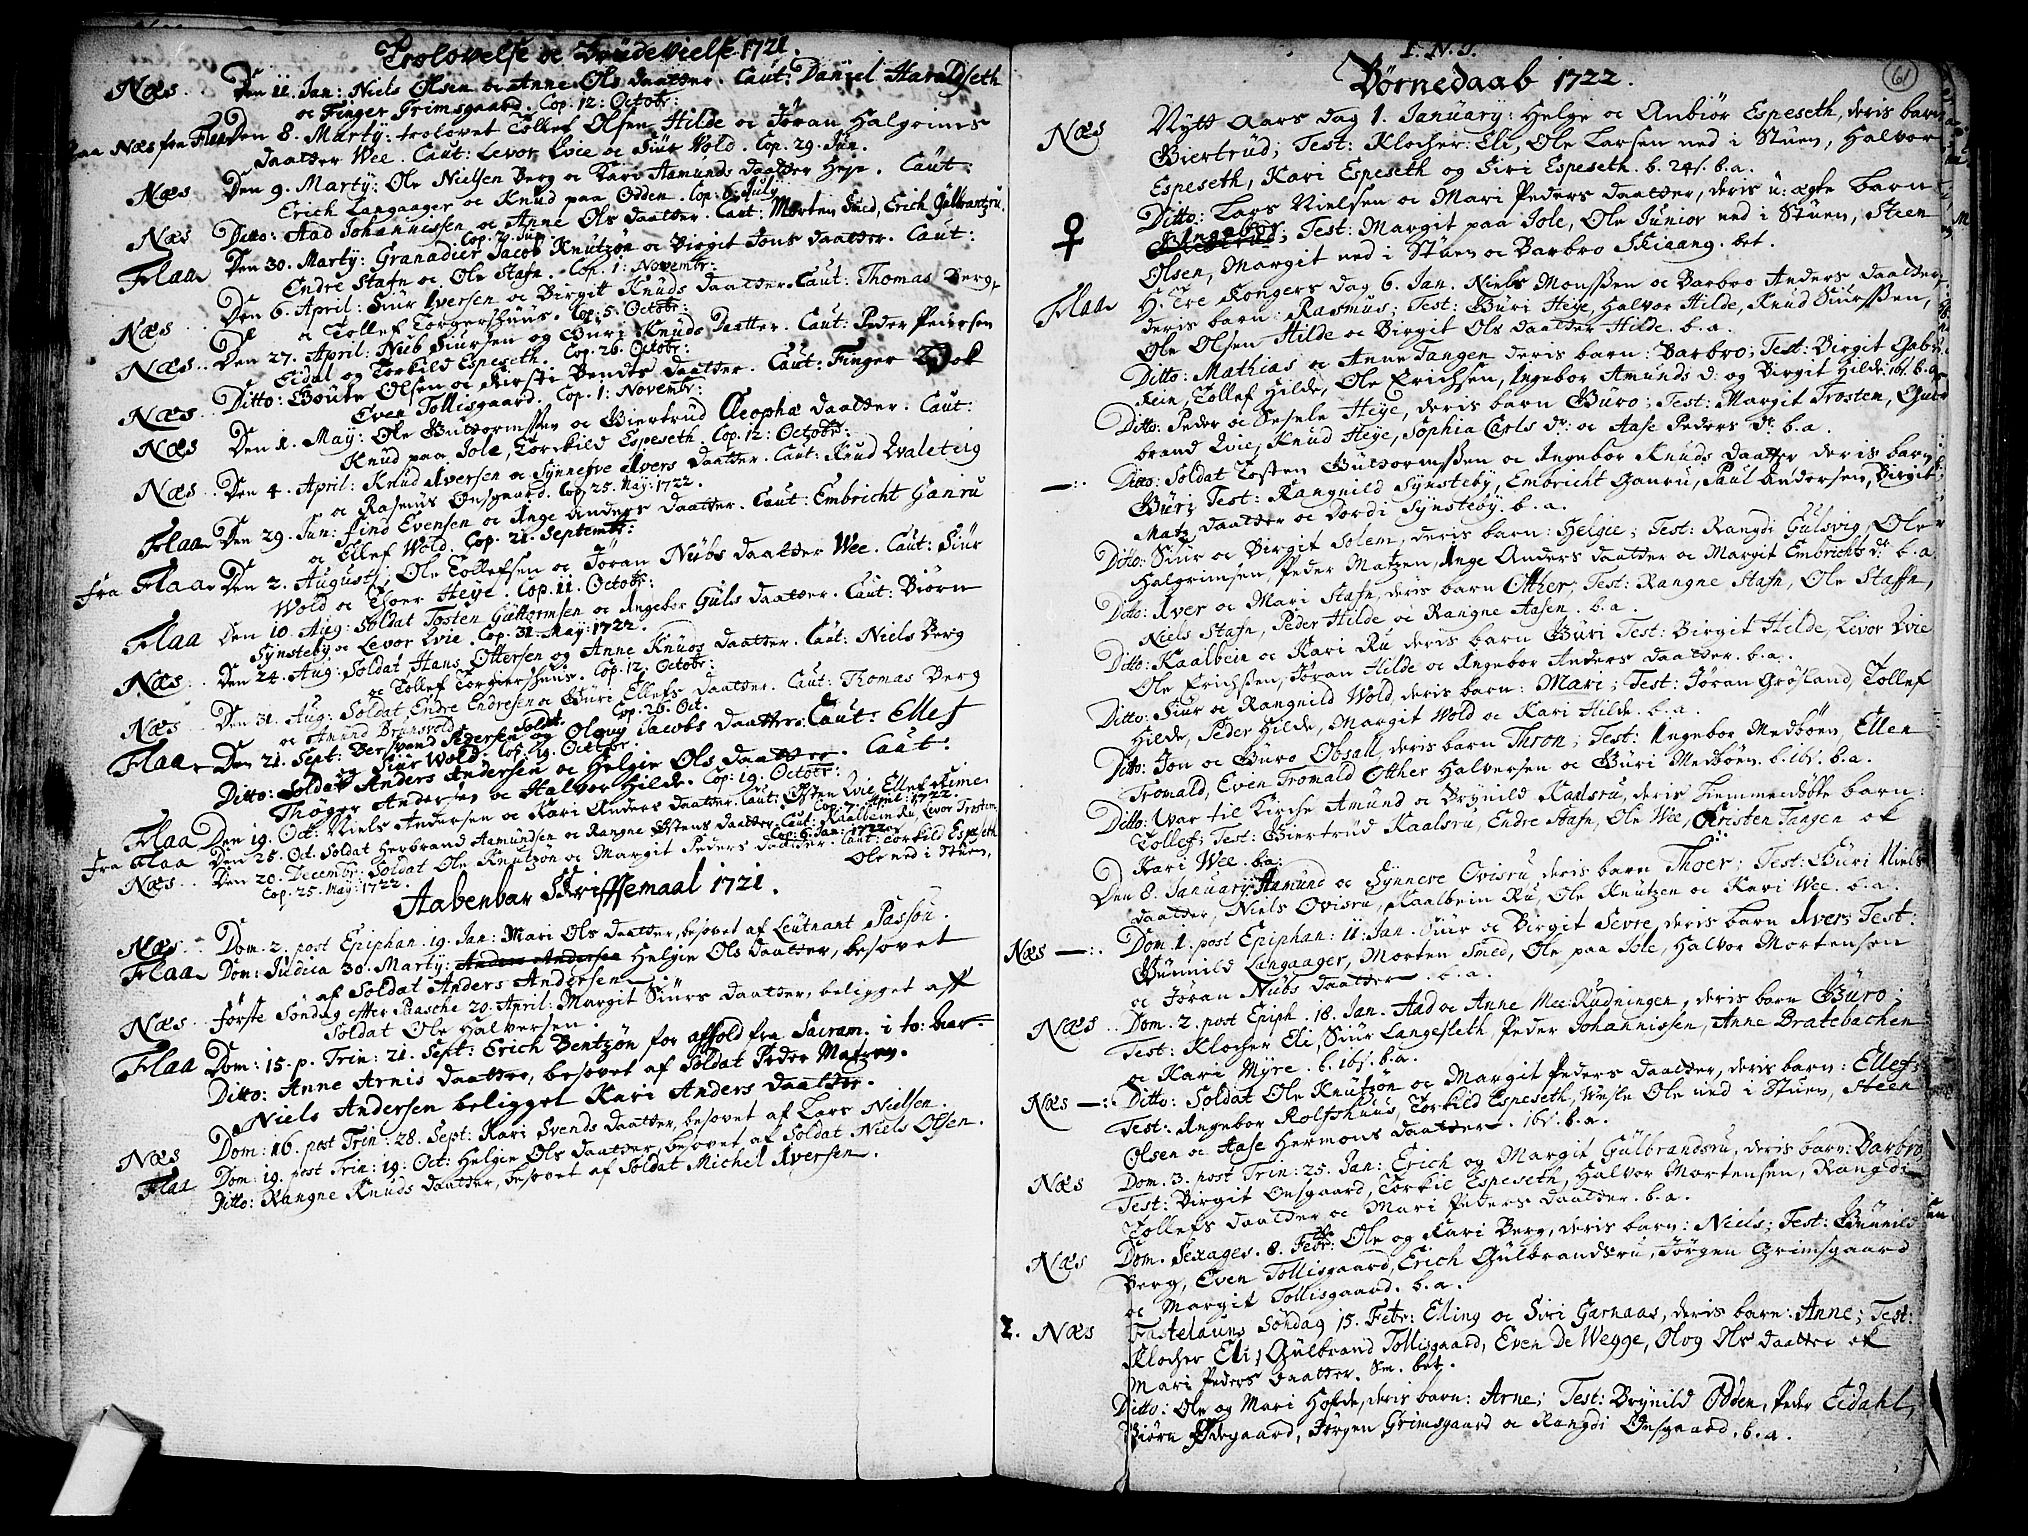 Trolovelse oc Brudevielse 1721.
Næs. Den 11. Jan: Niels Olsen oc Anne Ols daatter. Caut: Daniel Haraldseth
oc Finger Grimsgaard. Cop. 12: Octobr:
Næs fra Flaa Den 8. Martÿ: trolovet Tollef Olsen Hilde oc Jøran Halgrims
daatter Wee. Caut: Levor Lvie oc Siur Wold. Cop. 29. Jun.
Næs Den 9. Martÿ: Ole Nielsen Berg oc Kari Aamunds daatter Heje. Caut:
Erich Langaager oc Knud paa Odden. Cop. 6. July.
Næs Ditto: Aad Johannessen oc Anne Ols daatter. Caut: Morten Smed, Erich Gulbrantzru.
Cop. 29. Jun.
Flaa Den 30. Martÿ: Granadier Jacob Knutzøn oc Birgit Jons daatter. Caut:
Endre Stafn oc Ole Stafn. Cop. 1: Novembr:
Næs Den 6. April: Siur Iversen oc Birgit Knuds daatter. Caut: Thomas Berg,
oc Tollef Torgershuus. Cop. 5. Octobr:
Næs Den 27. April: Nub Siursen og Guri Knuds Daatter. Caut: Peder Pedersen
Eidal og Torkild Espeseth. Cop. 26. Octobr:
Næs Ditto: Boute Olsen oc Kersti Bendts daatter. Caut: Finger
Even Tollisgaard. Cop. 1: Novembr:
Næs Den 1. May: Ole Guttormssen oc Giertrud Cleophæ daatter. Caut:
Knud paa Jole, Torkild Espeseth. Cop. 12: Octobr:
Næs Den 4. April: Knud Iversen oc Synnefve Ivers daatter. Caut: Knud Qvaleteig
oc Rasmus Onsgaard. Cop. 25. May: 1722.
Flaa Den 29. Jun: Find Evensen oc Inge Anders daatter. Caut: Embricht Ganru
oc Ellef Wold. Cop. 21. Septembr:
fra Flaa Den 2. Augusti: Ole Tollefsen oc Jøran Nubs daatter Wee. Caut: Siur
Wold oc Thoer Heÿe. Cop. 11. Octobr:
Flaa Den 10. Aug: Soldat Tosten Guttormsen oc Ingebor Guls daatter. Caut: Biørn
Synstebÿ oc Levor Lvie. Cop. 31. May: 1722.
Næs Den 24. Aug: Soldat Hans Ottersen og Anne Knuds daatter. Caut: Niels Berg
oc Tollef Torgiershuus. Cop. 12. Octobr:
Næs Den 31. Aug: Soldat Endre Endresen oc Guri Ellefs daatter. Caut: Thomas Berg
oc Amund Brunsvold. Cop. 26. Oct.
Flaa Den 21. Sept: Bersvend Pedersen og Olaug Jacobs daatter. Caut: Ellef
og Siur Wold. Cop. 19. Octobr.
Ditto: Soldat Anders Andersen oc Helgie Ols daatter. Caut:
Thøger Andersen oc Halvor Hilde. Cop: 19. Octobr:
Flaa Den 19. Oct: Niels Andersen oc Kari Anders daatter. Caut: Østen Lvie, Ellef Kime.
Cop. 7. April: 1722.
fra Flaa Den 25. Oct. Soldat Herbrand Aamundsen oc Rangne Østens daatter. Caut: Kaalbein Ru, Levor Trosten.
Cop: 6. Jan: 1722.
Næs Den 20. Decembr: Soldat Ole Knutzøn oc Margit Peders daatter. Caut: Torkild Espeseth
Cop. 25. May: 1722. Ole ned i Stuen.
Aabenbar Skrifftemaal 1721.
Næs Dom. 2. post Epiphan. 19. Jan: Mari Ols daatter, besovet af Leutnant Passou.
Flaa Dom: Judica 30. Martÿ: Anders Andersen Helgie Ols daatter, besovet
af Soldat Anders Andersen.
Næs Første Søndag effter Paasche 20. April: Margit Siurs daatter, beligget aff
Soldat Ole Halversen.
Flaa Dom: 15. p. Trin: 21. Sept: Erich Bentzøn for affhold fra Sacram. i to: Aar.
Ditto: Anne Arnis daatter, besovet af Soldat Peder Matzen.
Niels Andersen beligget Kari Anders daatter.
Næs Dom: 16. post Trin: 28. Sept: Kari Svends daatter, besovet af Lars Nielsen.
Flaa Dom: 19. post Trin: 19. Oct: Helgie Ols daatter, besovet af Soldat Niels Olsen.
Ditto: Rangne Knuds daatter, besovet af Soldat Michel Iversen.
I. N. J.
61
Børnedaab 1722.
Næs Nytt Aars dag 1. January: Helge oc Anbiør Espeseth, deris barn
Giertrud; Test: Klocher: Eli, Ole Larsen ned i Stuen, Halvor
Espeseth, Kari Espeseth og Siri Espeseth. b. 24s. b.a.
♀ Ditto: Lars Nielsen oc Mari Peders daatter, deris u: ægte barn
Ingebor; Test: Margit paa Jole, Ole Junior ned i Stuen, Steen
Olsen, Margit ned i Stuen oc Barbro Skiaang. bet.
Flaa H: Tre Kongers dag 6. Jan. Niels Monssen oc Barbro Anders daatter,
deris barn: Rasmus; Test: Guri Heÿe, Halvor Hilde, Knud Siurssen,
Ole Olsen Hilde oc Birgit Ols daatter Hilde. b.a.
Ditto: Mathias oc Anne Tangen deris barn: Barbro; Test: Birgit
Rein, Tollef Hilde, Ole Erichsen, Ingebor Amunds d: og Birgit Hilde. 16s. b.a.
Ditto: Peder oc Sesele Heÿe, deris barn Guro; Test: Margit Trosten,
brand Lvie, Knud Heÿe, Sophia Carls dr: oc Aase Peders dr. b.a.
Ditto: Soldat Tosten Guttormssen oc Ingebor Knuds daatter deris barn
Guri; Test: Rangnild Synstebÿ, Embricht Ganru, Paul Andersen, Birgit
Matz daatter oc Dordi Synstebÿ. b.a.
Ditto: Siur oc Birgit Solem, deris barn: Helgie; Test: Rangdi Gulsvig, Ole
Halgrimsen, Peder Matzen, Inge Anders daatter oc Margit Embrichts dr. b.a.
Ditto: Iver oc Mari Stafn, deris barn Otther; Test: Rangne Stafn, Ole Staffn,
Niels Stafn, Peder Hilde oc Rangne Aasen. b.a.
Ditto: Kaalbein oc Kari Ru deris barn Guri Test: Birgit Hilde, Levor Lvie
Ole Erichssen, Jøran Hilde oc Ingebor Anders daatter. b.a.
Ditto: Siur oc Rangnild Wold, deris barn: Mari; Test: Jøran Grøsland, Tollef
Hilde, Peder Hilde, Margit Wold oc Kari Hilde. b.a.
Ditto: Jon oc Guro Obsall, deris barn Thron; Test: Ingebor Medbøen, Ellen
Tromald, Even Tromald Otther Halversen oc Guri Medbøen. b. 16s. b.a.
Ditto: War til Kirche Amund oc Brynild Kaalsru, deris hiemmedøbte barn:
Tollef; Test: Giertrud Kaalsru, Endre Stafn, Ole Wee, Kristen Tangen ok
Kari Wee. b.a:
Den 8. January Aamund oc Synneve Ovisru deris barn Thoer; Test: Guri Niels
daatter, Niels Ovisru, Kaalbein Ru, Ole Knutzen oc Kari Wee. b.a.
Næs Dom. 1. post Epiphan: 11: Jan. Siur oc Birgit Sevre, deris barn Iver; Test:
Gunnild Langaager, Morten Smed, Ole paa Jole, Halvor Mortensen
oc Jøran Nubs daatter. b.a.
Næs Dom. 2. post Epiph. 18. Jan. Aad oc Anne Mee: Rudningen, deris barn Guro.
Test: Klocher Eli, Siur Langesleth, Peder Johannissen, Anne Bratebachen
oc Kari Myre. b. 16s. b.a.
Næs Ditto: Soldat Ole Knutzøn oc Margit Peders daatter, deris barn: Ellef;
Test: Ingebor Rolfshuus, Torkild Espeseth, Ole ned i Stuen, Steen
Olsen oc Aase Hermons daatter. 16s. b.a.
Næs Dom. 3. post Trin: 25. Jan: Erich og Margit Gulbrandsru, deris barn: Barbro
Test: Birgit Onsgaard, Torkil Espeseth, Halvor Mortensen, Rangdi
Tollefs daatter oc Mari Peders daatter. b.a.
Næs Dom. Sexages. 8. Febr: Ole og Kari Berg, deris barn: Niels; Test: Gunnild
Berg, Even Tollisgaard, Erich Gulbrandsru, Jørgen Grimsgaard
oc Margit Tollisgaard. b.a.
2. Næs Fastelauns Søndag 15. Febr: Eling oc Siri Garnaas, deris barn: Anne; Test:
Klocher Eli, Gulbrand Tollisgaard, Even De Wegge, Olog Ols daatter ok
Mari Peders daatter. Sm. bet.
Ditto: Ole og Mari Hofde, deris barn: Arne; Test: Brynild Odden, Peder Eidahl,
Biørn Ødegaard, Jørgen Grimsgaard oc Rangdi Onsgaard. b.a.